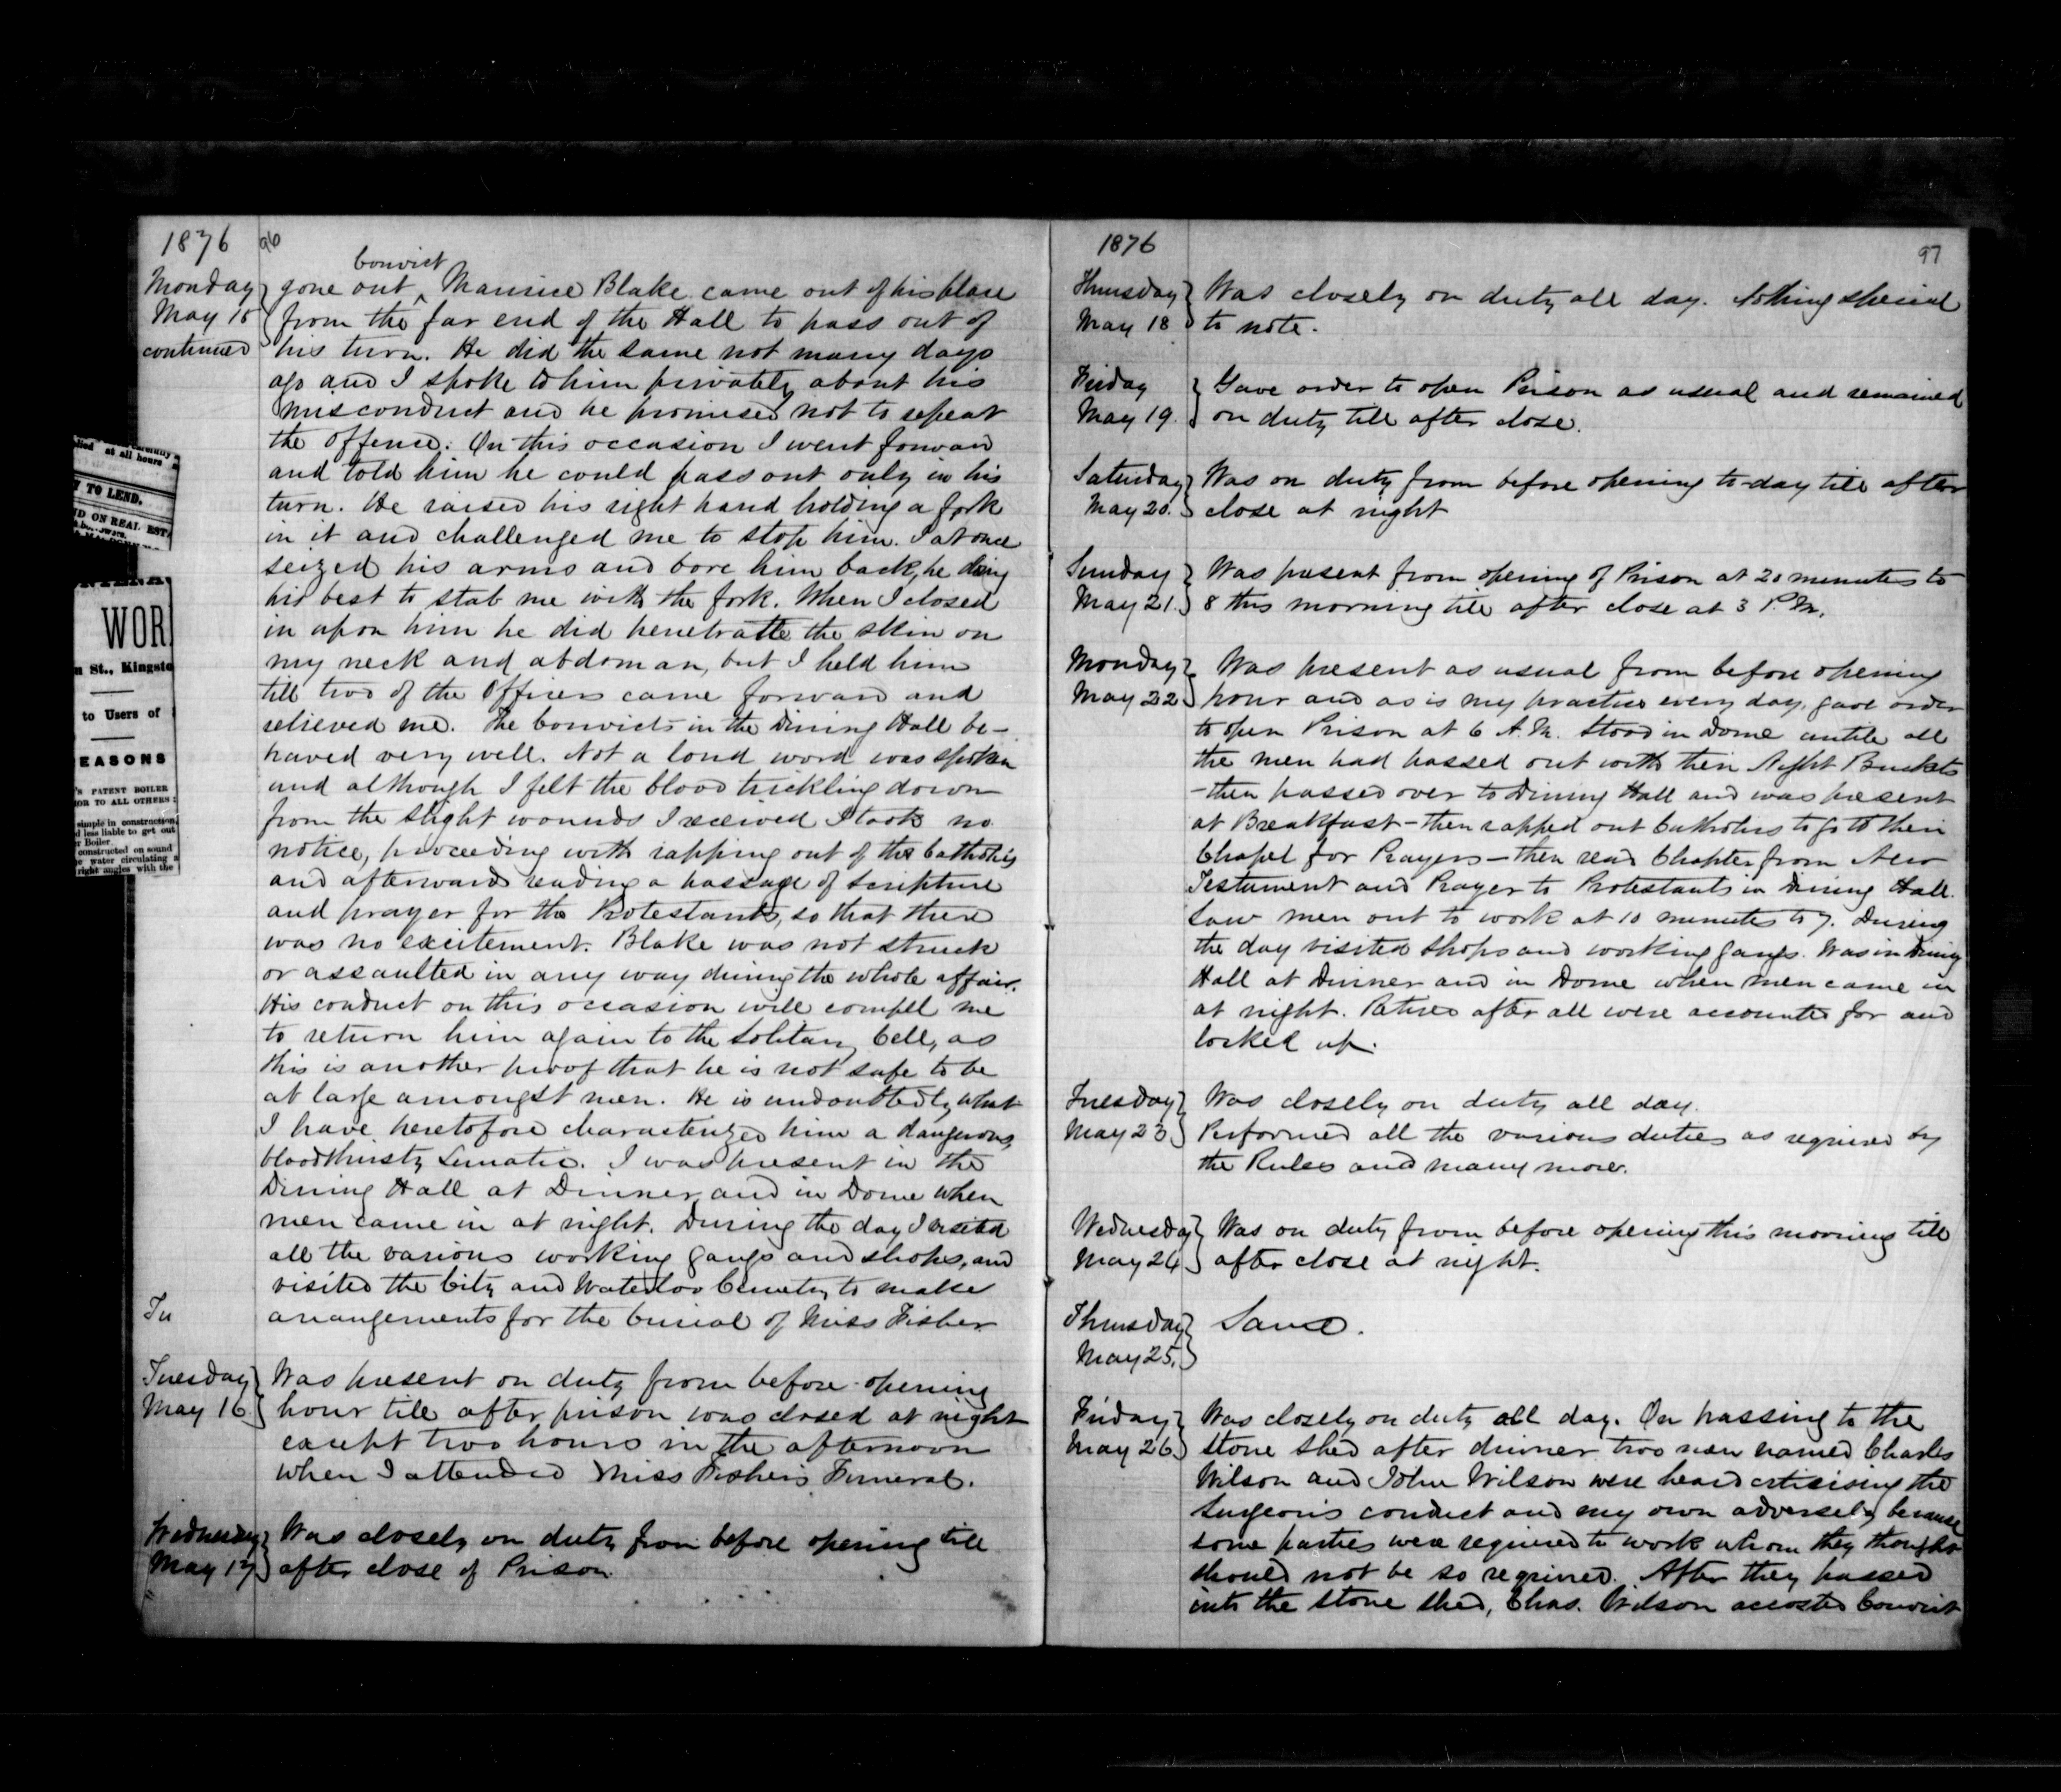 1876
96
Monday
May 15
continued
convict
gone out ^ Maurice Blake came out of his place
from the far end of the Hall to pass out of
his turn. He did the same not many days
ago and I spoke to him privately about his
misconduct and he promised not to repeat
the offence. On this occasion I went forward
and told him he could pass out only in his
turn. He raised his right hand holding a fork
in it and challenged me to stop him. I at once
seized his arms and bore him back, he doing
his best to stab me with the fork. When I closed
in upon him he did penetratte the skin on
my neck and abdoman, but I held him
till two of the Officers came forward and
relieved me. The Convicts in the Dining Hall be-
haved very well. Not a loud word was spoken
and although I felt the blood trickling down
from the slight wounds I received I took no
notice, proceeding with rapping out of the Catholics
and afterwards reading a passage of Scripture
and prayer for the Protestants, so that there
was no excitement. Blake was not struck
or assaulted in any way during the whole affair.
His conduct on this occasion will compell me
to return him again to the Solitary Cell, as
this is another proof that he is not safe to be
at large amongst men. He is undoubtedly what
I have heretofore characterized him a dangerous,
bloodthirsty Lunatic. I was present in the
Dining Hall at Dinner and in Dome when
men came in at night. During the day I visited
all the various working gangs and shops, and
visited the City and Waterloo Cemetry to make
Tu
arrangements for the burial of Miss Fisher
Tuesday
May 16
Was present on duty from before opening
hour till after prison was closed at night
except two hours in the afternoon
when I attended Miss Fishers Funeral.
Wednesday
May 17
Was closely on duty from before opening till
after close of Prison
at all hours
TO LEND.
ON REAL EST
WOR
St., Kingsto
to Users of
EASONS
PATENT BOILER
TO ALL OTHERS
simple in construction,
less liable to get out
Boiler
constructed on sound
water circulating
right angles with the
1876
97
Thursday
May 18
Was closely on duty all day. Nothing special
to note.
Friday
May 19.
Gave order to open Prison as usual and remained
on duty till after close.
Saturday
May 20.
Was on duty from before opening to-day till after
close at night
Sunday
May 21.
Was present from opening of Prison at 20 minutes to
8 this morning till after close at 3 P.M.
Monday
May 22
Was present as usual from before opening
hour and as is my practice every day, gave order
to open Prison at 6 A.M. Stood in Dome until all
the men had passed out with their Night Buckets
- then passed over to Dining Hall and was present
at Breakfast - then rapped out Catholics to go to their
Chapel for Prayers - then read Chapter from New
Testament and Prayer to Protestants in Dining Hall.
Saw men out to work at 10 minutes to 7. During
the day visited shops and working gangs. Was in Dining
Hall at Dinner and in Dome when men came in
at night. Retired after all were accounted for and
locked up.
Tuesday
May 23
Was closely on duty all day.
Performed all the various duties as required by
the Rules and many more.
Wednesday
May 24
Was on duty from before opening this morning till
after close at night.
Thursday
May 25.
Same.
Friday
May 26
Was closely on duty all day. On passing to the
stone shed after dinner two men named Charles
Wilson and John Wilson were heard critisising the
Surgeon's conduct and my own adversely because
some parties were required to work whom they thought
should not be so required. After they passed
into the stone shed, Chas. Wilson accosted Convict